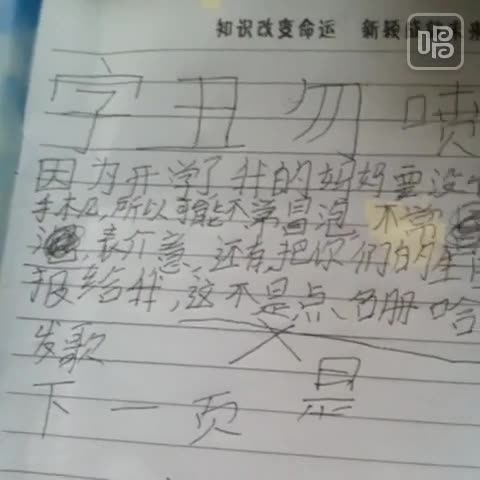 知识改变命运 新颖
唱
字丑勿喷
因为开学了我的妈妈要没
手木几,所以可能不常冒泡 不常
,表介意,还有,把你们的生
报给我,这不是点名册哈
发歌
是
下一页